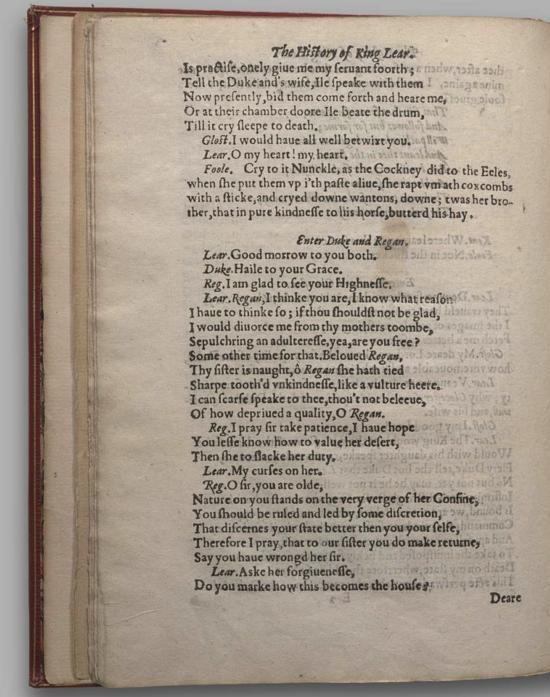 The History of King Lear.
Is practise, onely giue me my seruant foorth;
Tell the Duke and's wife, Ile speake with them
Now presently, bid them come forth and heare me,
Or at their chamber doore Ile beate the drum,
Till it cry sleepe to death.
Glost. I would haue all well betwixt you.
Lear. O my heart! my heart.
Foole. Cry to it Nunckle, as the Cockney did to the Eeles,
when she put them vp i'th paste aliue, she rapt vm ath coxcombs
with a sticke, and cryed downe wantons, downe; twas her bro-
ther, that in pure kindnesse to his horse, butterd his hay.
Enter Duke and Regan.
Lear. Good morrow to you both.
Duke. Haile to your Grace.
Reg. I am glad to see your Highnesse.
Lear. Regan, I thinke you are, I know what reason
I haue to thinke so; if thou shouldst not be glad,
I would diuorce me from thy mothers toombe,
Sepulchring an adulteresse, yea, are you free?
Some other time for that. Beloued Regan,
Thy sister is naught, ô Regan she hath tied
Sharpe tooth'd vnkindnesse, like a vulture heere.
I can scarse speake to thee, thou't not beleeue,
Of how depriued a quality, O Regan.
Reg. I pray sir take patience, I haue hope
You lesse know how to value her desert,
Then she to slacke her duty.
Lear. My curses on her.
Reg. O sir, you are olde,
Nature on you stands on the very verge of her Confine,
You should be ruled and led by some discretion,
That discernes your state better then you your selfe,
Therefore I pray, that to our sister you do make returne,
Say you haue wrongd her sir.
Lear. Aske her forgiuenesse,
Do you marke how this becomes the house?
Deare